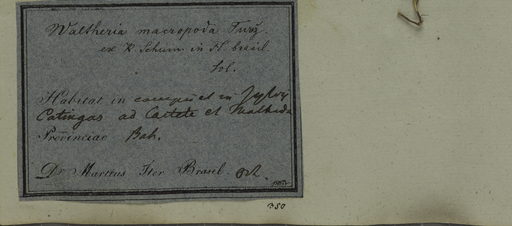 Waltheria macropoda Turcz
ex K Schum. in Fl. brasil
fol.
Habitat in campis et in Sylvis
Catingas ad Caetete et Malhada
Provinciae Bah.
Dr Martius Iter Brasil. Oct.
350